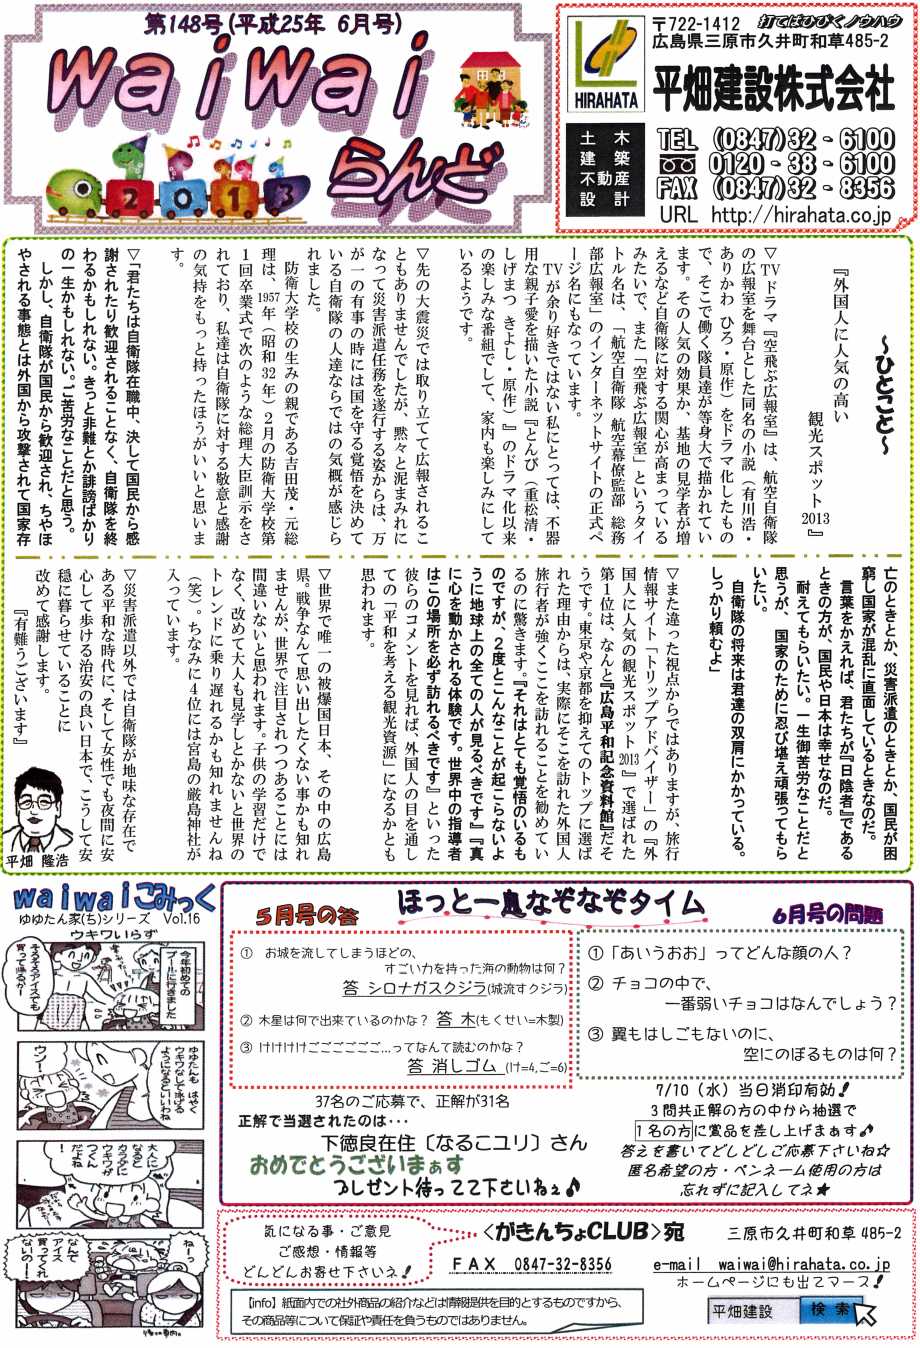 第148号(平成25年 6月号)
waiwai
らんど
2013
HIRAHATA
〒722-1412 打てばひびくノウハウ
広島県三原市久井町和草485-2
平畑建設株式会社
土木
建築
不動産
設計
TEL (0847)32-6100
0120-38-6100
FAX (0847)32-8356
URL http://hirahata.co.jp
～ひとこと～
『外国人に人気の高い
観光スポット2013』
▽TVドラマ『空飛ぶ広報室』は、航空自衛隊
の広報室を舞台とした同名の小説（有川浩・
ありかわ ひろ・原作）をドラマ化したもの
で、そこで働く隊員達が等身大で描かれてい
ます。その人気の効果か、基地の見学者が増
えるなど自衛隊に対する関心が高まっている
みたいで、また「空飛ぶ広報室」というタイ
トル名は、「航空自衛隊 航空幕僚監部 総務
部広報室」のインターネットサイトの正式ペ
ージ名にもなっています。
TVが余り好きではない私にとっては、不器
用な親子愛を描いた小説『とんび（重松清・
しげまつ きよし・原作）』のドラマ化以来
の楽しみな番組でして、家内も楽しみにして
いるようです。
▽先の大震災では取り立てて広報されるこ
ともありませんでしたが、黙々と泥まみれに
なって災害派遣任務を遂行する姿からは、万
が一の有事の時には国を守る覚悟を決めて
いる自衛隊の人達ならではの気概が感じら
れました。
防衛大学校の生みの親である吉田茂・元総
理は、1957年（昭和32年）２月の防衛大学校第
１回卒業式で次のような総理大臣訓示をさ
れており、私達は自衛隊に対する敬意と感謝
の気持をもっと持ったほうがいいと思いま
す。
▽「君たちは自衛隊在職中、決して国民から感
謝されたり歓迎されることなく、自衛隊を終
わるかもしれない。きっと非難とか誹謗ばかり
の一生かもしれない。ご苦労なことだと思う。
しかし、自衛隊が国民から歓迎され、ちやほ
やされる事態とは外国から攻撃されて国家存
亡のときとか、災害派遣のときとか、国民が困
窮し国家が混乱に直面しているときなのだ。
言葉をかえれば、君たちが『日陰者』である
ときの方が、国民や日本は幸せなのだ。
耐えてもらいたい。一生御苦労なことだと
思うが、国家のために忍び堪え頑張ってもら
いたい。
自衛隊の将来は君達の双肩にかかっている。
しっかり頼むよ」
▽また違った視点からではありますが、旅行
情報サイト「トリップアドバイザー」の『外
国人に人気の観光スポット2013』で選ばれた
第１位は、なんと『広島平和記念資料館』だそ
うです。東京や京都を抑えてのトップに選ば
れた理由からは、実際にそこを訪れた外国人
旅行者が強くここを訪れることを勧めてい
るのに驚きます。『それはとても覚悟のいるも
のですが、２度とこんなことが起こらないよ
うに地球上の全ての人が見るべきです』『真
に心を動かされる体験です。世界中の指導者
はこの場所を必ず訪れるべきです』といった
彼らのコメントを見れば、外国人の目を通し
ての「平和を考える観光資源」になるかとも
思われます。
▽世界で唯一の被爆国日本、その中の広島
県。戦争なんて思い出したくない事かも知れ
ませんが、世界で注目されつつあることには
間違いないと思われます。子供の学習だけで
なく、改めて大人も見学しとかないと世界の
トレンドに乗り遅れるかも知れませんね
（笑）。ちなみに４位には宮島の厳島神社が
入っています。
▽災害派遣以外では自衛隊が地味な存在で
ある平和な時代に、そして女性でも夜間に安
心して歩ける治安の良い日本で、こうして安
穏に暮らせていることに
改めて感謝します。
『有難うございます』
平畑 隆浩
waiwaiこみっく
ゆゆたん家(ち)シリーズ Vol.16
ウキワいらず
今年初めての
プールに行きました
そろそろアイスでも
買って帰るか～
ゆゆたんも はやく
ウキワなしで泳げる
ようになるといいわね
ウン！
大人に
なると
カラダに
ウキワが
つくん
だよね
！
ねーっ
なんで
アイス
買ってくれ
ないのー！
ほっと一息なぞなぞタイム
5月号の答
① お城を流してしまうほどの、
すごい力を持った海の動物は何？
答 シロナガスクジラ(城流すクジラ)
② 木星は何で出来ているのかな？ 答 木(もくせい=木製)
③ けけけけごごごごごご…ってなんて読むのかな？
答 消しゴム (け=4,ご=6)
37名のご応募で、正解が31名
正解で当選されたのは･･･
下徳良在住〔なるこユリ〕さん
おめでとうございまぁす
プレゼント待っててて下さいねぇ♪
6月号の問題
① 「あいうおお」ってどんな顔の人？
② チョコの中で、
一番弱いチョコはなんでしょう？
③ 翼もはしごもないのに、
空にのぼるものは何？
7/10（水）当日消印有効！
３問共正解の方の中から抽選で
１名の方に賞品を差し上げまぁす♪
答えを書いてどしどしご応募下さいね☆
匿名希望の方・ペンネーム使用の方は
忘れずに記入してネ★
気になる事・ご意見
ご感想・情報等
どんどんお寄せ下さいネ！
＜がきんちょCLUB＞宛 三原市久井町和草485-2
ＦＡＸ 0847-32-8356 e-mail waiwai@hirahata.co.jp
ホームページにも出てマース！
平畑建設 検索
【info】紙面内での社外商品の紹介などは情報提供を目的とするものですから、
その商品等について保証や責任を負うものではありません。